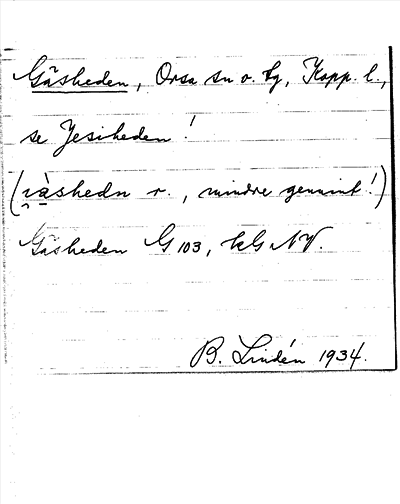 Gåsheden, Orsa sn o. tg, Kopp. l.,
se Jesiheden!
(i̯àshedn r., mindre genuint!)
Gåsheden G 103, kG NV.
B. Lindén 1934.